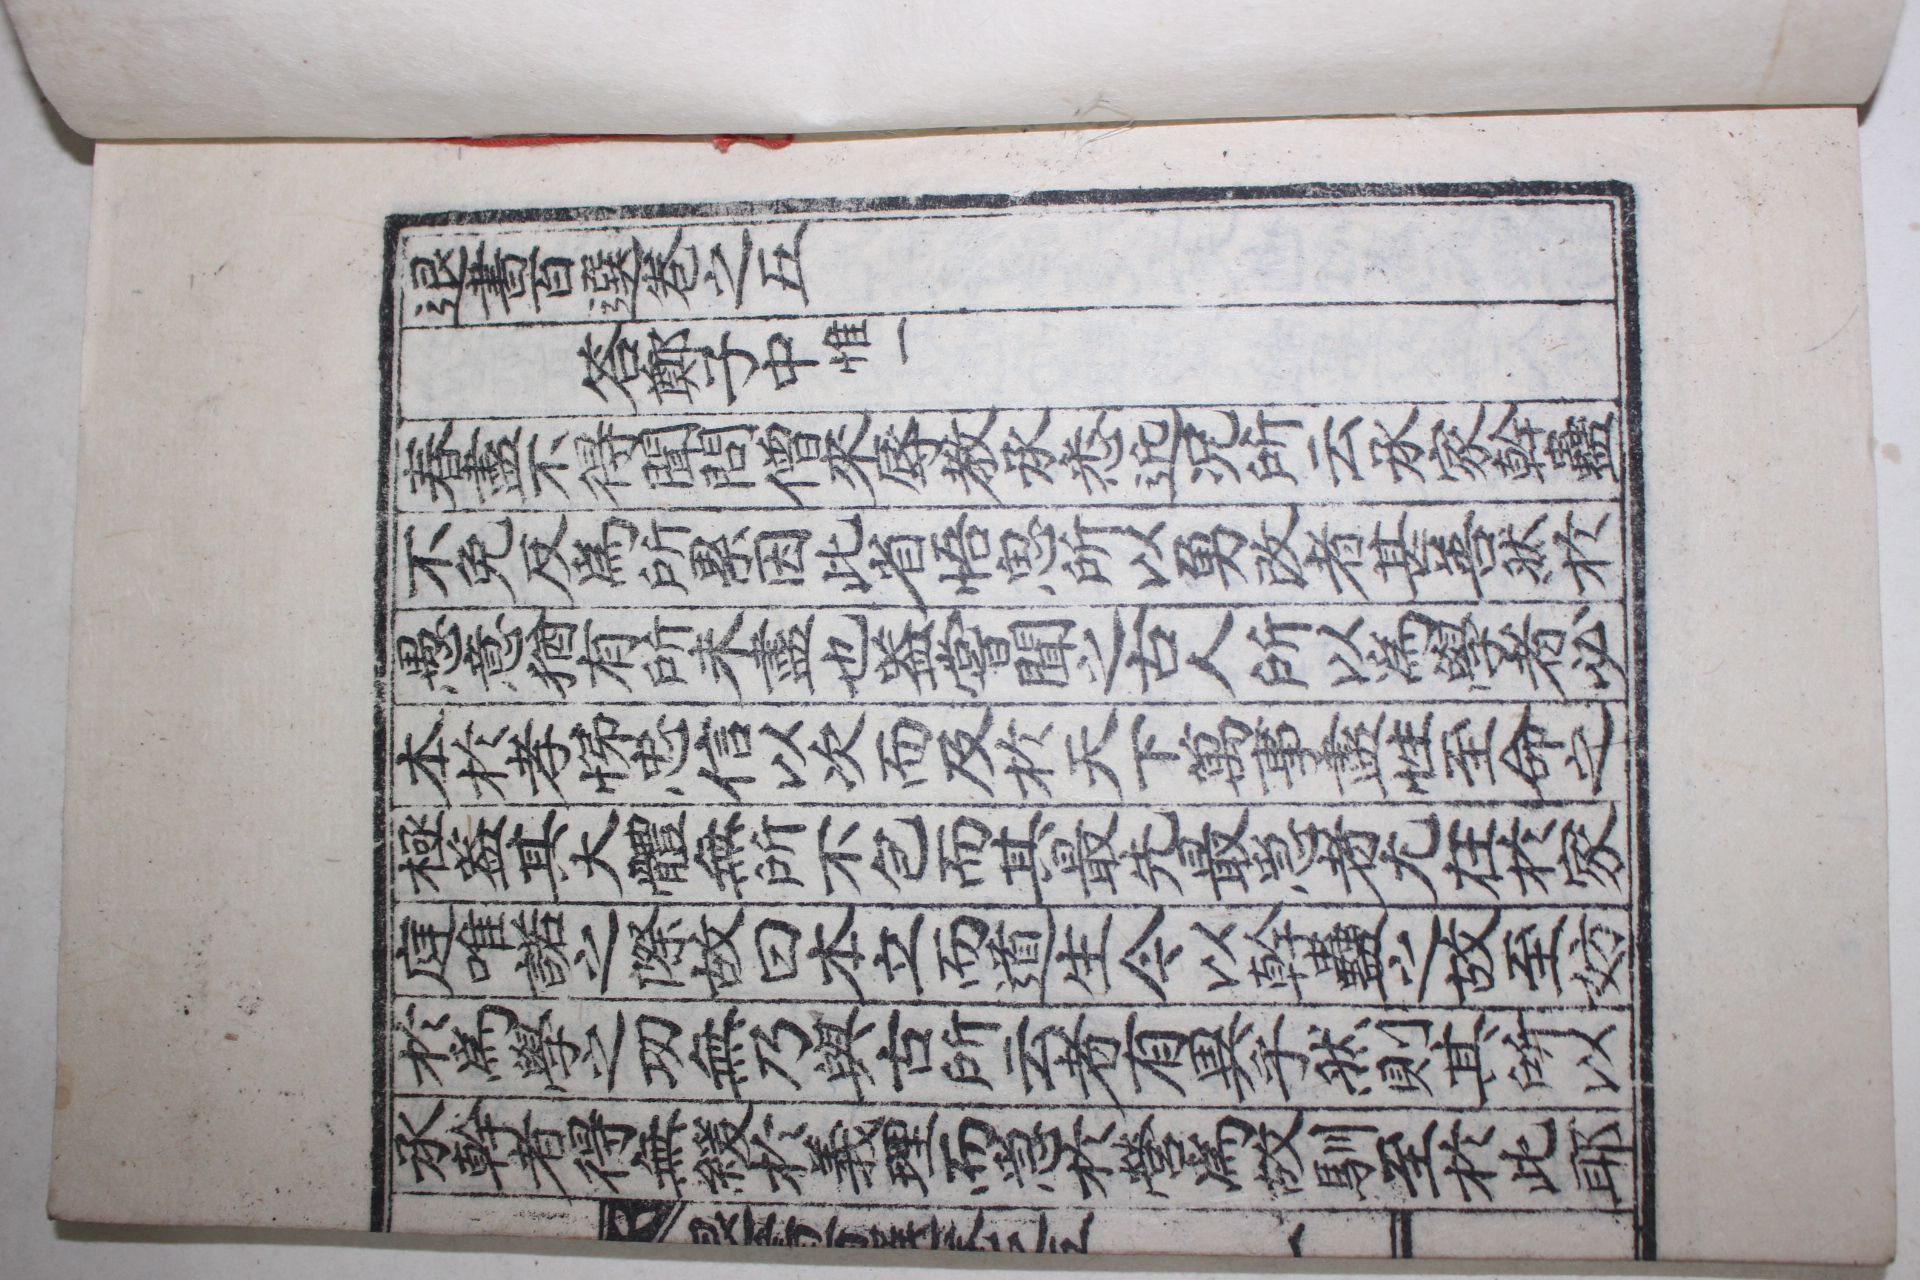 退書百選卷之五
答鄭子中惟一
春盡不得聞問僧來辱教承悉近況所云承家幹蠱
不免反爲所累因此省悟思所以勇改者甚善然於
愚意猶有所未盡也蓋嘗聞之古人所以爲學者必
本於孝悌忠信以次而及於天下萬事盡性至命之
極蓋其大體無所不包而其最先最急者尤在於家
庭唯諾之際故曰本立而道生今以幹蠱之故至妨
於爲學之功無乃與古所云者有異乎然則其所以
承幹者得無緩於義理而急於營爲故馴至於此耶